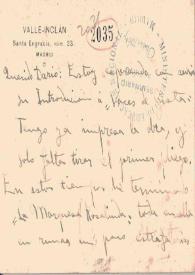 VALLE-INCLÁN
Santa Engracia, núm. 23.
MADRID
2035
Querido Darío: Estoy esperando con ansia
su Introducción a "Voces de gesta".
Tengo ya impresa la obra, y
solo falta tirar el primer pliego.
En estos días he terminado
"La Marquesa Rosalinda",
en rimas un poco extra